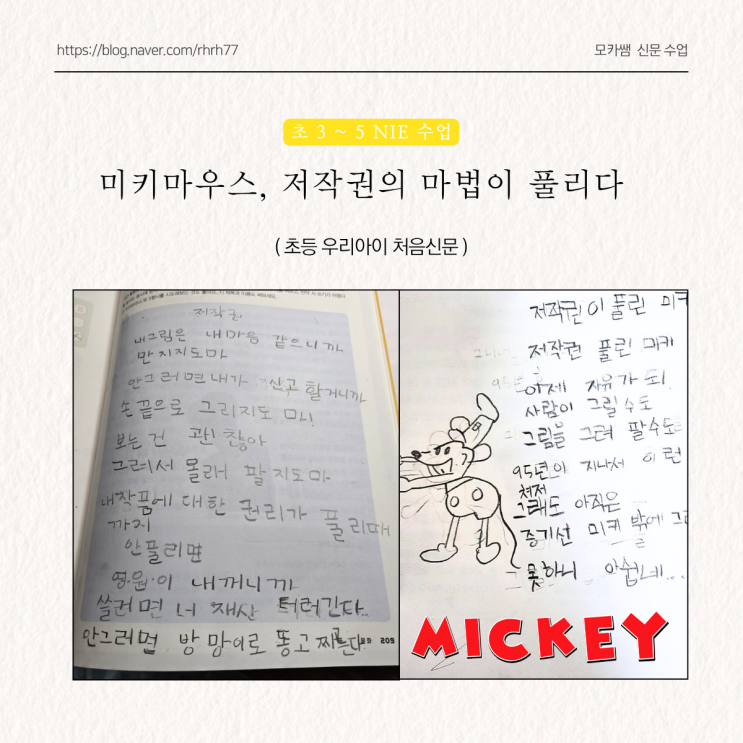 https://blog.naver.com/rhrh77
모카쌤 신문 수업
초 3 ~ 5 NIE 수업
미키마우스, 저작권의 마법이 풀리다
( 초등 우리아이 처음신문 )
저작권
내그림은 내마음 같으니까
만지지도마
안그러면내가 신고 할거니까
손끝으로 그리지도 마!
보는건 괜찮아
그려서 몰래 팔지도마
내작품에 대한 권리가 풀리때
까지
안풀리면
영원이 내꺼니까
쓸러면 너 재산 털러간다..
안그러면 방망이로 똥고찌른다
209
저작권이 풀린 미키
저작권 풀린 미키
이제 자유가 되!
사람이 그릴수도
그림을 그려 팔수도
95년의 지나서 이런
처저
그래도 아직은
증기선 미키 밖에 그
못하니 아쉽네...
MICKEY